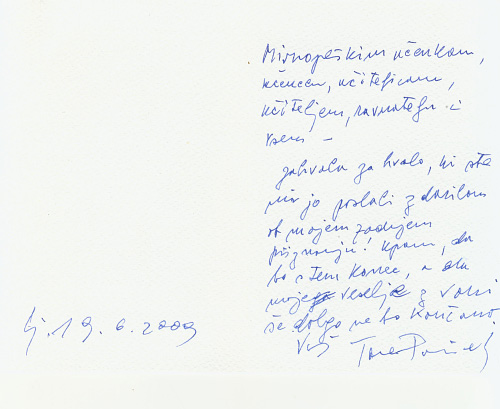 Mirnopeškim učenkam,
učencem, učiteljicam,
učiteljem, ravnatelju in
vsem –
zahvala za hvalo, ki ste
mi jo poslali z darilom
ob mojem zadnjem
priznanju! Upam, da
bo s tem konec, a da
moje veselje z vami
še dolgo ne bo končano
Vaš Tone Pavček
Lj. 19. 6. 2009